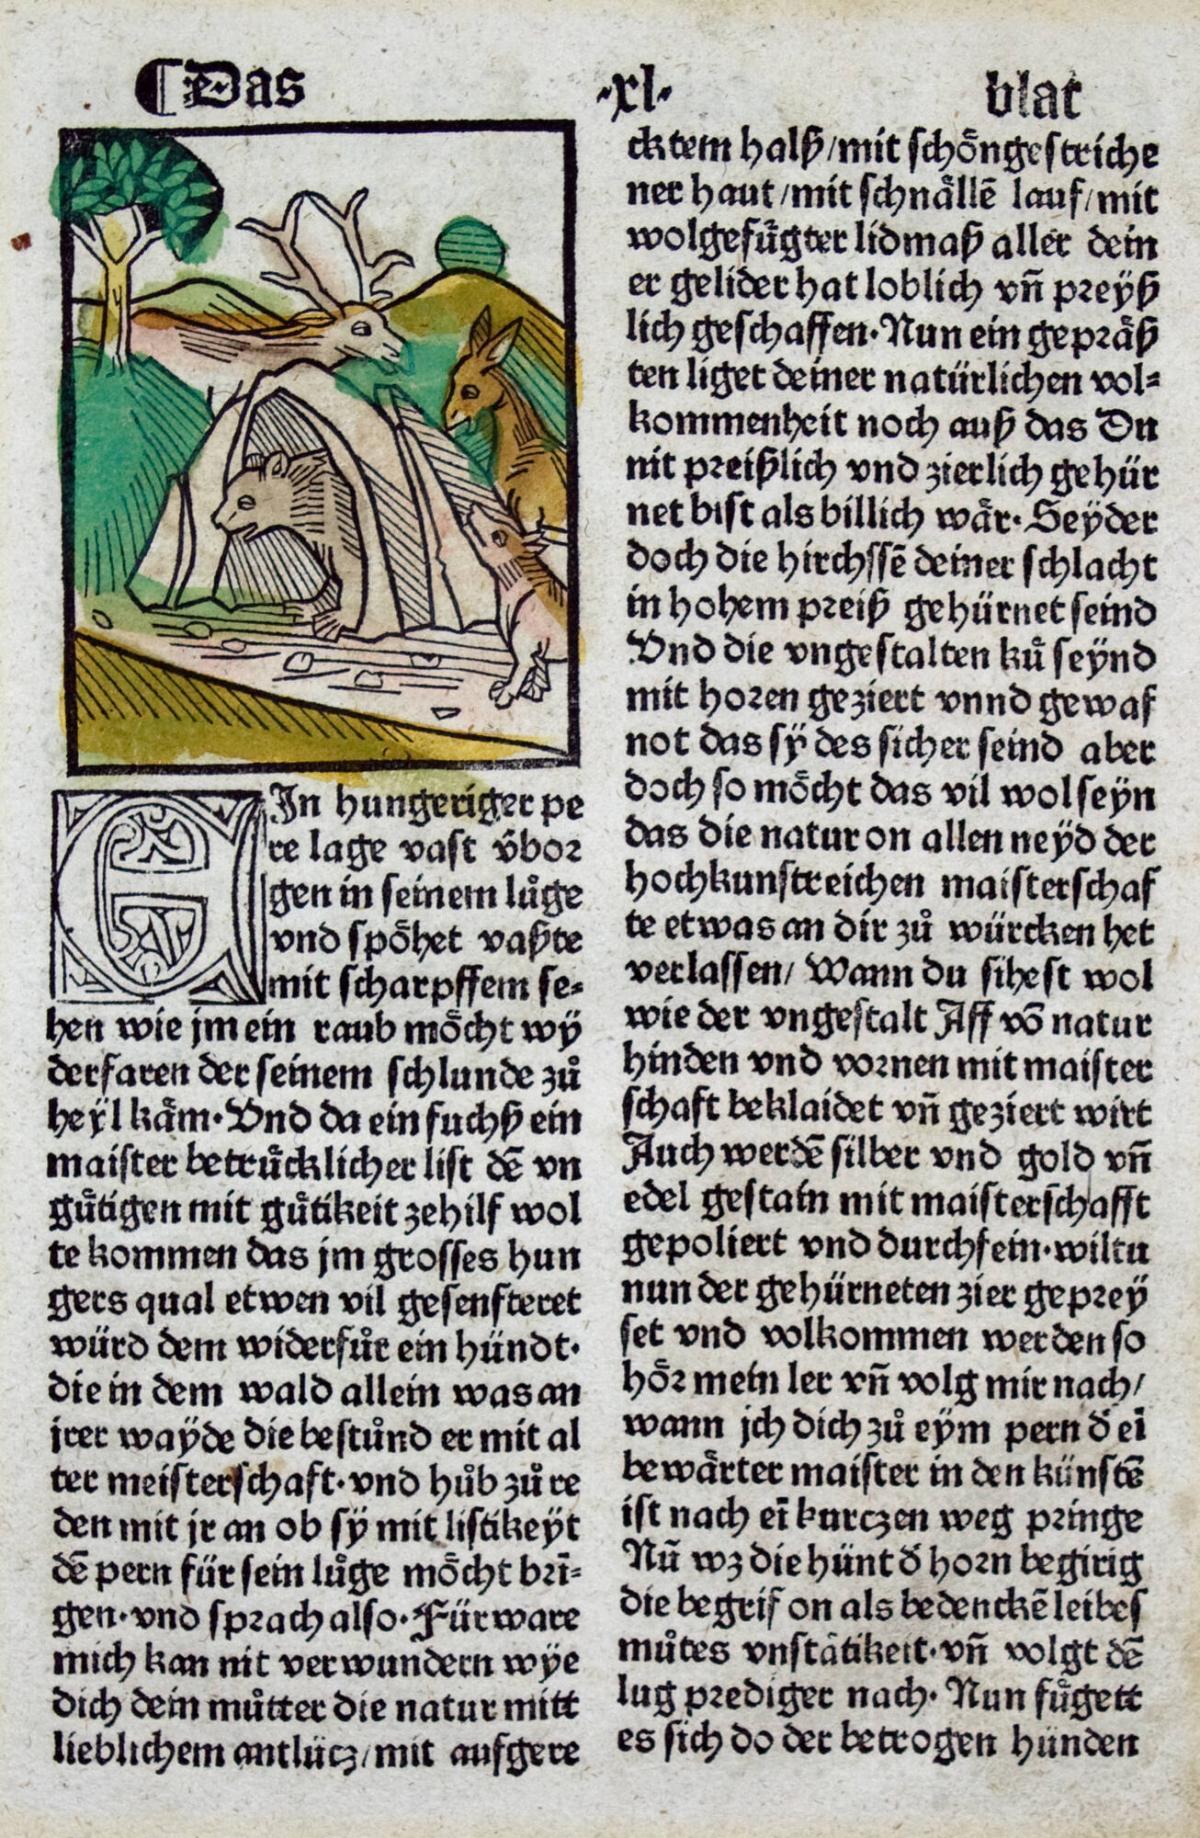 Das ·xl· blat
EIn hungeriger pe
re lage vast v̈bor
gen in seinem lůge
vnd spöhet vaßte
mit scharpffem se⸗
hen wie jm ein raub möcht wÿ
derfaren der seinem schlunde zů
heÿl käm·Vnd da ein fuchß ein
maister betrücklicher list dē vn
gůtigen mit gůtikeit zehilf wol
te kommen das jm grosses hun
gers qual etwen vil gesenfteret
würd dem widerfůr ein hündt·
die in dem wald allein was an
jrer wayde die bestůnd er mit al
ter meisterschaft·vnd hůb zů re
den mit jr an ob sÿ mit listikeÿt
dē pern für sein lůge möcht bri̅⸗
gen·vnd sprach also·Fürware
mich kan nit verwundern wÿe
dich dein můtter die natur mitt
lieblichem antlücz/mit aufgere
cktem halß/mit schöngestriche
ner haut/mit schnällē lauf/mit
wolgefůgter lidmaß aller dein
er gelider hat loblich vn̄ preÿß
lich geschaffen·Nun ein gepräß
ten liget deiner natürlichen vol⸗
kommenheit noch auß das Du
nit preißlich vnd zierlich gehür
net bist als billich wär·Seÿder
doch die hirchssē deiner schlacht
in hohem preiß gehürnet seind
Vnd die vngestalten ků seÿnd
mit horen geziert vnnd gewaf
not das sÿ des sicher seind aber
doch so möcht das vil wol seÿn
das die natur on allen neÿd der
hochkunstreichen maisterschaf
te etwas an dir zů würcken het
verlassen/ Wann du sihest wol
wie der vngestalt Aff vō natur
hinden vnd vornen mit maister
schaft beklaidet vn̄ geziert wirt
Auch werdē silber vnd gold vn̄
edel gestain mit maisterschafft
gepoliert vnd durchfein·wiltu
nun der gehürneten zier geprey
set vnd volkommen werden so
hör mein ler vn̄ volg mir nach/
wann jch dich zů eÿm pern d̄ ei̅
bewärter maister in den künstē
ist nach ei̅ kurczen weg pringe
Nū wz die hünt d̄ horn begirig
die begrif on als bedenckē leibes
můtes vnstätikeit·vn̄ volgt dē
lug prediger nach· Nun fůgett
es sich do der betrogen hünden